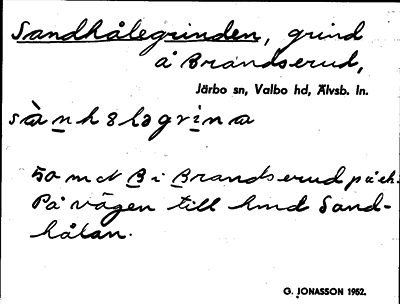 Sandhålegrinden, grind
å Brandserud,
Järbo sn, Valbo hd, Älvsb. ln.
sànhålegrina
50 m N B i Brandserud på ek.
På vägen till hmd Sand-
hålan.
G. JONASSON 1952.